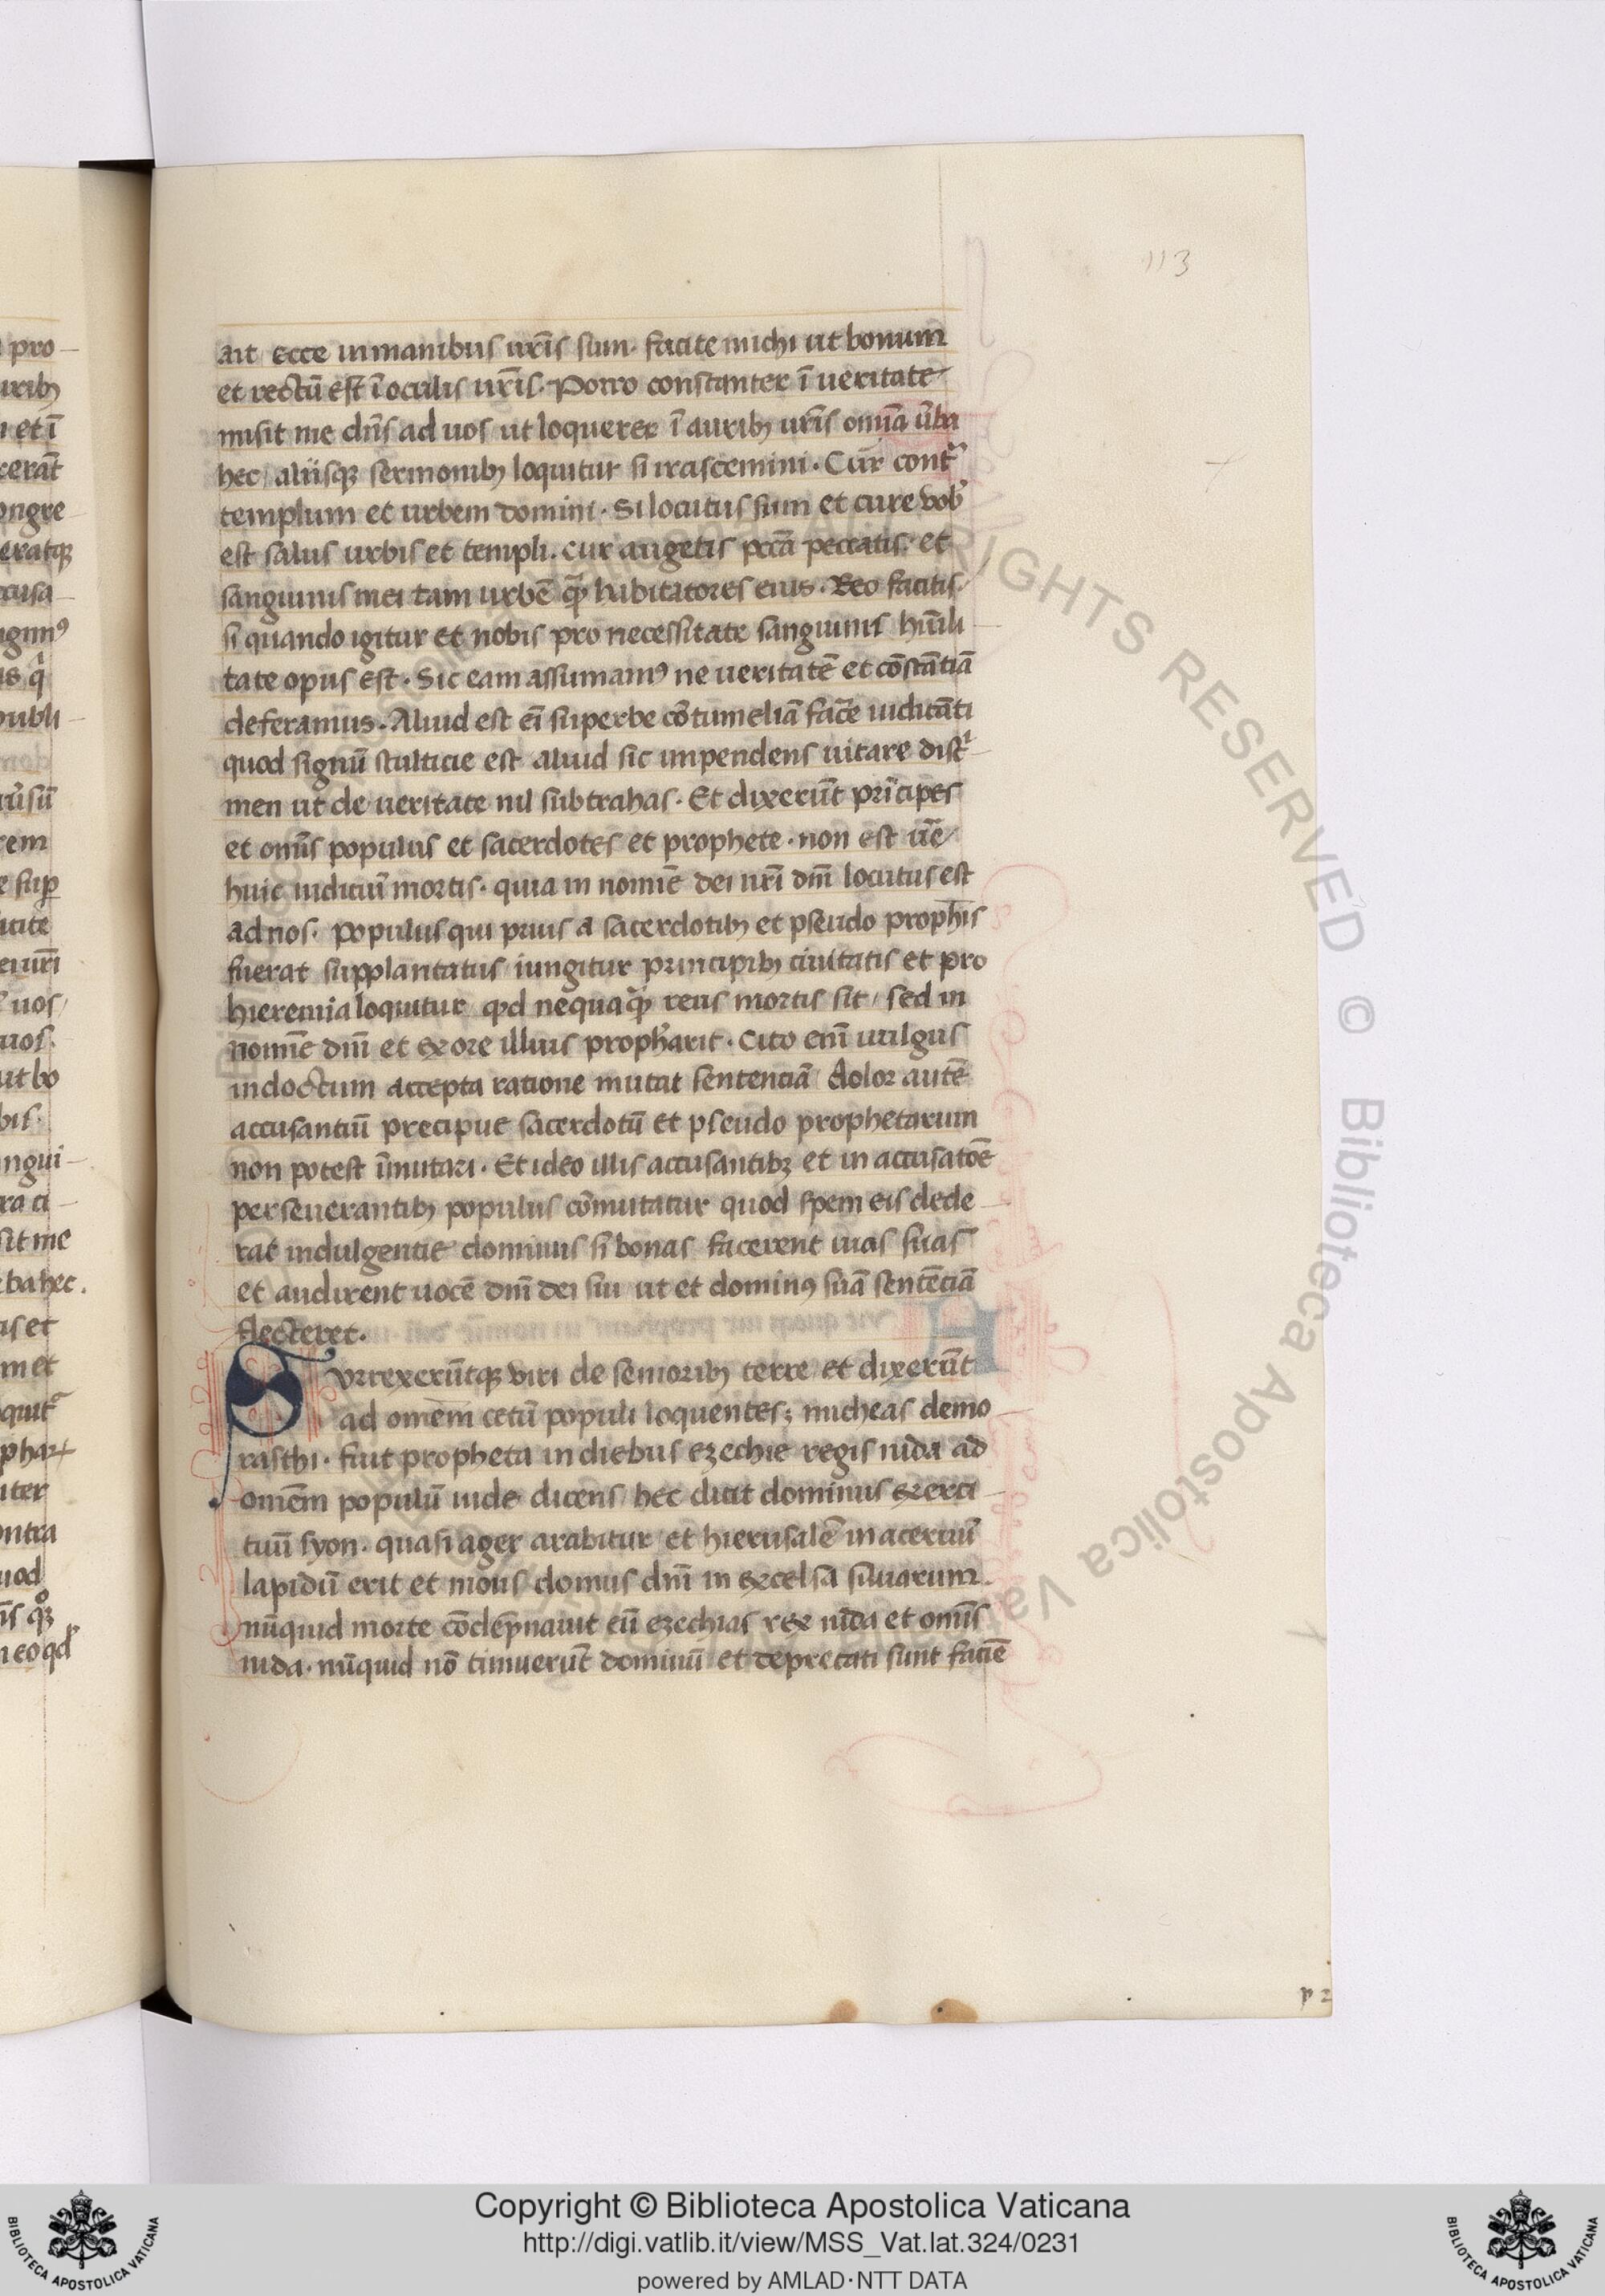 113
ait ecce in manibus vr̄is sum· facite michi ut bonum
et rectū est ī oculis vr̄is· Porro constanter ī ueritate
misit me dn̄s ad uos ut loquerer ī aurib; vr̄is om̄ia ūba
hec/ aliisqꝫ sermonib; loquitur si irascemini· Cur contͣ
templum et urbem domini· Si locutus sum et cure vob̾
est salus urbis et templi· cur augetis pcc̄a peccatis· et
sanguinis mei tam urbē qͣ̄ habitatores eius· Reo facitis/
si quando igitur et nobis pro necessitate sanguinis hūili
tate opus est· Sic eam assumamꝰ ne ueritatē et cōstātiā
deferamus· Aliud est eī superbe cōtumeliā fac̄e iudicāti
quod signū stulticie est aliud sic impendens uitare discͥ
men ut de ueritate nil subtrahas· Et dixerūt prīcipes
et om̄is populus et sacerdotes et prophete· non est
huic iudiciū mortis· quia in nomīe dei nr̄i dn̄i locutus est
ad nos· populus qui prius a sacerdotib; et pseudo proph̄is
fuerat supplantatus/ iungitur principib; ciuitatis et pro
hieremia loquitur qd nequaqͣ̄ reus mortis sit/ sed in
nomīe dn̄i et ex ore illius proph̄arit· Cito enī uulgus
indoctum accepta ratione mutat sententiā/ dolor autē
accusantiū precipue sacerdotū et pseudo prophetarum
non potest īmutari· Et ideo illis accusantibꝫ et in accusatōe
perseuerantib; populus cōmutatur quod spem eis dede
rat indulgentie dominus si bonas facerent uias suas
et audirent uocē dn̄i dei sui ut et dominꝰ suā sentētiā
flecteret·
Surrexerūtqꝫ viri de seniorib; terre et dixerūt
ad omēm cetū populi loquentes; micheas demo
rasthi· fuit propheta in diebus ezechie regis iuda ad
omēm populū iude dicens/ hec dicit dominus exerci
tuū syon· quasi ager arabitur et hierusalē in aceruū
lapidū erit et mons domus dn̄i in excelsa siluarum·
nūquid morte cōdēpnauit eū ezechias rex iuda et om̄is
iuda· nūquid nō timuerūt dominū et deprecati sunt faciē
p 2
Copyright © Biblioteca Apostolica Vaticana
http://digi.vatlib.it/view/MSS_Vat.lat.324/0231
powered by AMLAD·NTT DATA